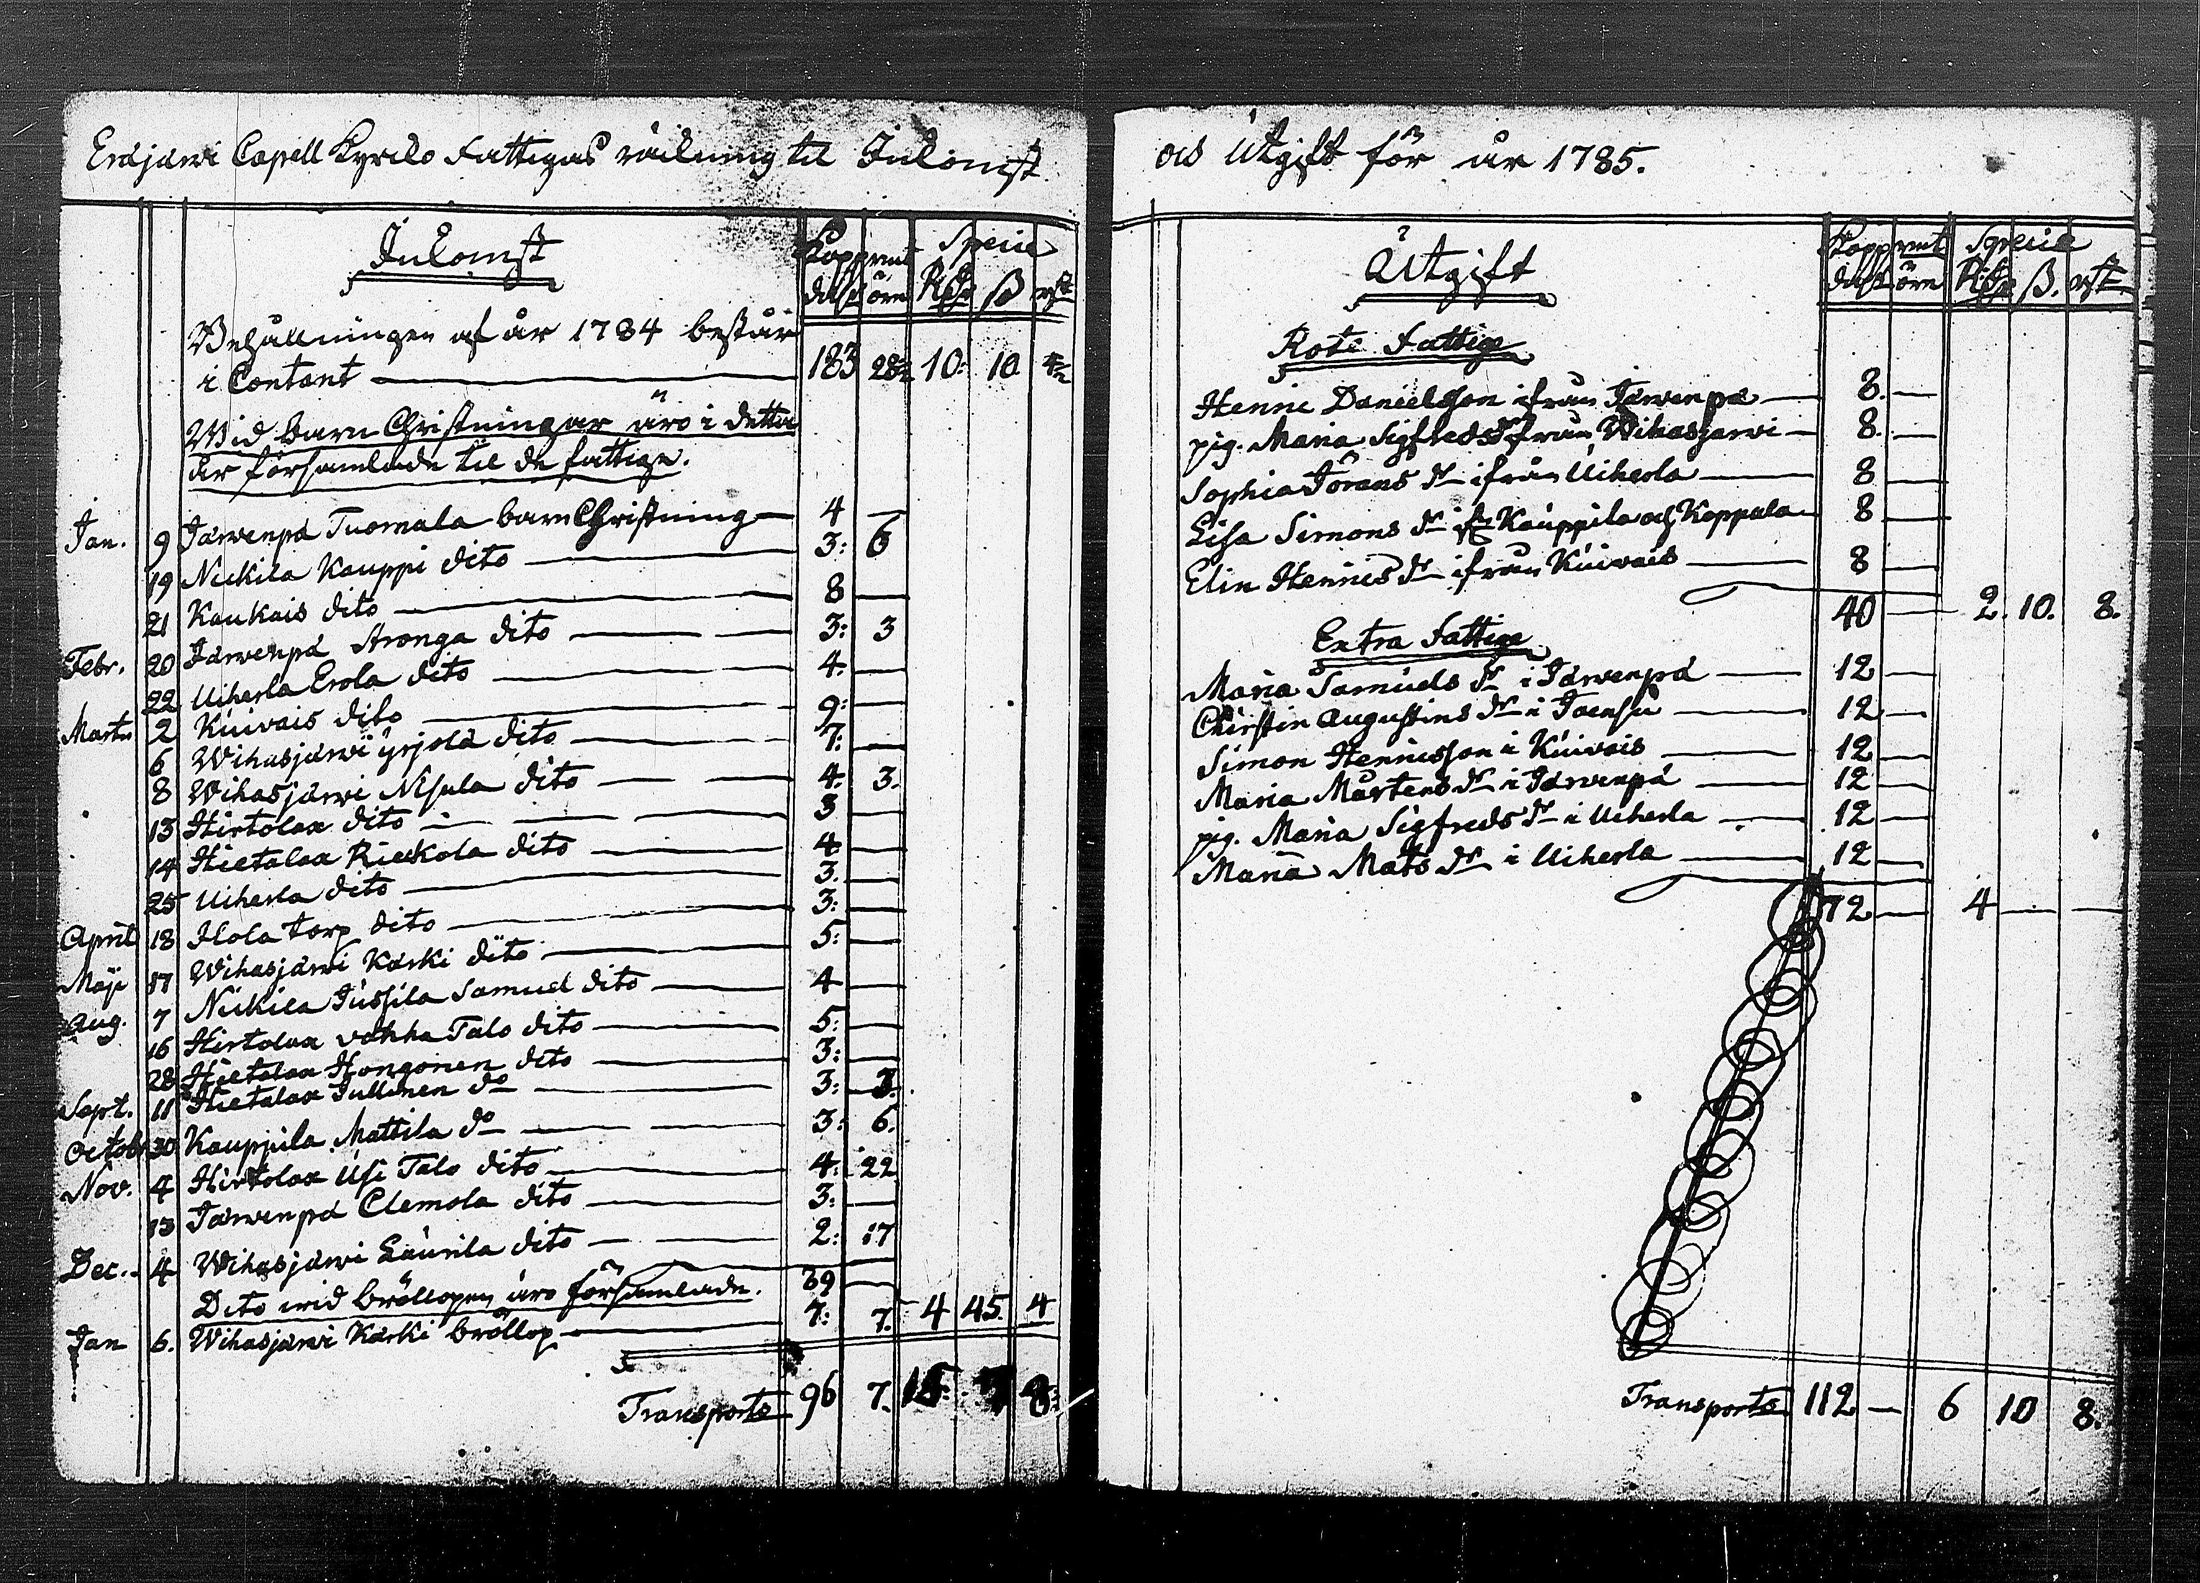 Eräjärwi Capell Kyrcko Fattigas räckning til Inkomst
Inkomst
Kopp mt Specie
dalr öre Rdr ß rst
Behållningen af år 1784 består
i Contant 183 28½ 10: 10
Wid barn Christningar äro i detta
år församlade til de fattige.
Jan. 9 Järwenpä Tuomala barn Christning 4 —
19 Nickila Kauppi dito 3: 6
21 Kaukais dito 8 —
Febr. 20 Järwenpä Aronga dito 3: 3
22 Uiherla Erola dito 4. —
Marts 2 Kuivais dito 9: —
6 Wihasjärwi Yrjola dito 7: —
8 Wihasjärwi Nisula dito 4. 3.
13 Hirtolax dito 3 —
14 Hietalax Rickola dito 4 —
25 Uiherla dito 3. —
April 18 Ilola torp dito 3: —
Maji 17 Wihasjärwi Kärki dito 5: —
Aug. 7 Nickila Jussila Samuel dito 4 —
16 Hirtolax vahha Talo dito 5: —
28 Hietalax Hongonen dito 3: —
Sept. 11 Hietalax Jullinen do 3: 3.
Octob. 30 Kauppila Mattila do 3: 6.
Nov. 4 Hirtolax Usi Talo dito 4: 22
13 Järwenpä Clemola dito 3: —
Dec. 4 Wihasjärwi Laurila dito 2: 17
89 —
Dito wid bröllopen äro församlade.
Jan 6. Wihasjärwi Kärki bröllop 7: 7. 4 45. 4
Transporto 96 7. 15: 7 8:
och Utgift för år 1785.
Utgift
Kopp mt Specie
dalr öre Rdr ß. rst.
Rote Fattige
Henric Danielsson ifrån Järwenpä 8. —
pig. Maria Sigfredsdr ifrån Wihasjärwi 8. —
Sophia Jörans dr ifrån Uiherla 8 —
Lisa Simons dr ifr Kauppila och Koppala 8 —
Elin Henrics dr ifrån Kuivais 8 —
40 — 2. 10. 8.
Extra Fattige
Maria Samuels dr i Järwenpä 12 —
Chirstin Augustins dr i Joensu 12 —
Simon Henricsson i Kuivais 12 —
Maria Mårtens dr i Järwenpä 12 —
pig. Maria Sigfreds dr i Uiherla 12 —
Maria Mats dr i Uiherla 12 —
72 — 4 — —
Transporto 112 — 6 10 8.